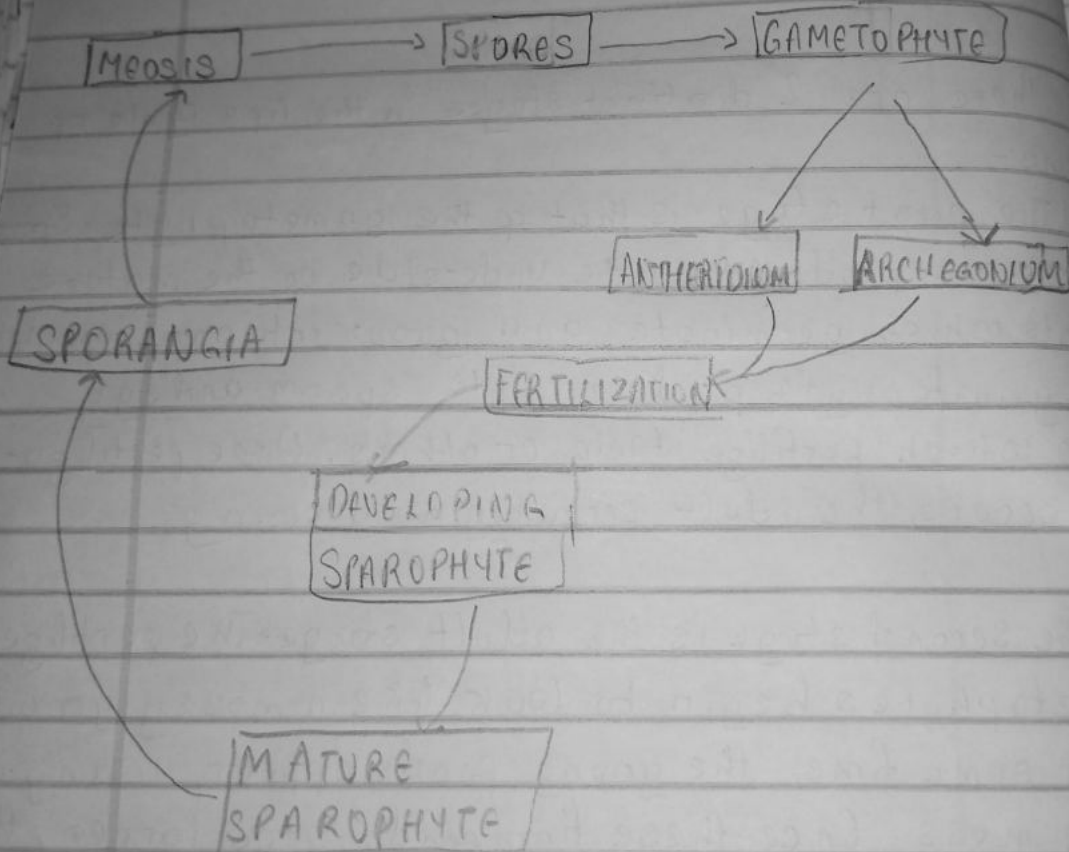 MEOSIS
SPORES
GAMETOPHYTE
ANTHERIDIUM
ARCHEGONIUM
SPORANGIA
FERTILIZATION
DEVELOPING
SPAROPHYTE
MATURE
SPAROPHYTE